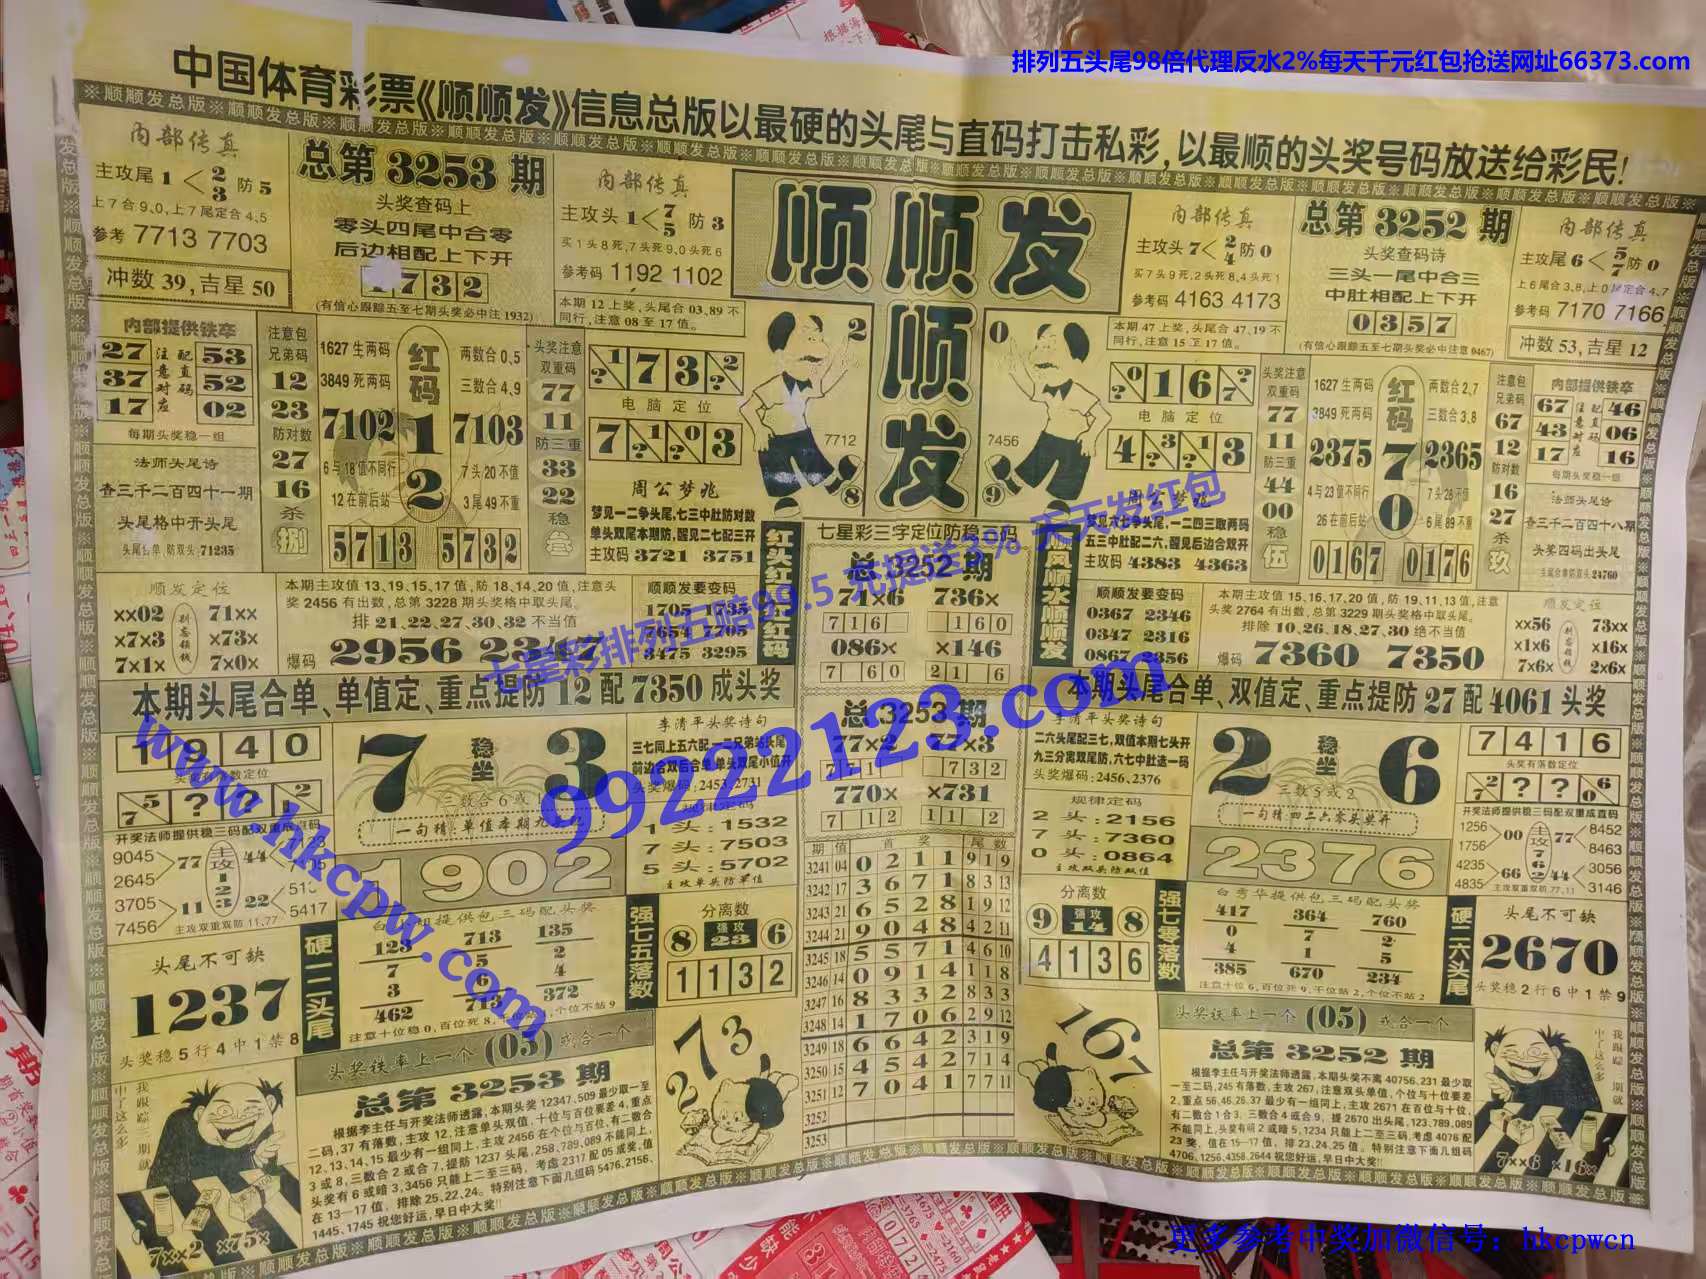 排列五头尾98倍代理反水2%每天千元红包抢送网址66373.com
中国体育彩票《顺顺发》信息总版以最硬的头尾与直码打击私彩,以最顺的头奖号码放送给彩民!
内部传真
主攻尾 1 < 2 3 防 5
上7合9.0,上7尾定合4.5
参考 7713 7703
冲数 39,吉星 50
总第 3253 期
头奖查码上
零头四尾中合零
后边相配上下开
1732
(有信心跟踪五至七期头奖必中注1932)
内部传真
主攻头 1 < 7 5 防 3
买1头8死,7头死9.0头死6
参考码 1192 1102
本期12上奖,头尾合03.89不
同行,注意08至17值。
顺顺发
顺
发
内部传真
主攻头 7 < 2 4 防 0
买7头9死,2头死8,4头死1
参考码 4163 4173
本期47上奖,头尾合47.19不
同行,注意15至17值。
总第 3252 期
头奖查码诗
三头一尾中合三
中肚相配上下开
0357
内部传真
主攻尾 6 < 5 7 防 0
参考码 7170 7166
冲数 53,吉星 12
内部提供铁卒
27 53
37 52
17 02
注意对应 配直码
每期头奖稳一组
法师头尾诗
查三千二百四十一期
头尾格中开头尾
头尾合单 防双头:71235
注意包
兄弟码
12
23
防对数
27
16
杀
捌
1627 生两码
3849 死两码
红码
两数合 0.5
三数合 4.9
7102 1 7103
6与18值不同行
7头20不值
12在前后站
2
3尾49不重
5713 5732
头奖注意
双重码
77
11
防三重
33
22
稳
叁
1 ? 7 3 2 ?
电脑定位
7 1 ? 0 ? 3
周公梦兆
梦见一二争头尾,七三中肚防对数
单头双尾本期防,醒见二七配三开
主攻码 3721 3751
2
7712
8
0
7456
9
? 0 1 6 7 ?
电脑定位
4 3 ? 1 ? 3
周公梦兆
梦见六七争头尾,一二四三取两码
五三中肚配二六,醒见后边合双开
主攻码 4383 4363
头奖注意
双重码
77
11
防三重
44
00
稳
伍
1627 生两码
3849 死两码
红码
两数合 2.7
三数合 3.8
2375 7 2365
4与23值不同行
7头28不值
26在前后站
0
6尾89不重
0167 0176
注意包
兄弟码
67
12
防对数
16
27
杀
玖
内部提供铁卒
67 46
43 06
17 16
每期头奖稳一组
法师头尾诗
查三千二百四十八期
头奖四码出头尾
顺发定位
xx02 71xx
x7x3 x73x
7x1x 7x0x
本期主攻值13,19,15,17值,防18,14,20值,注意头
奖2456有出数,总第3228期头奖格中取头尾。
排 21,22,27,30,32 不当值
爆码 2956 2347
顺顺发要变码
1705 1735
7654 7705
3475 3295
红头红尾红红码
七星彩三字定位防稳三码
总 3252 期
71x6 736x
716 160
086x x146
7 60 21 6
总 3253 期
77x2 77x3
71 732
770x x731
7 12 11 2
顺风顺水顺顺发
顺顺发要变码
0367 2346
0347 2316
0867 2356
本期主攻值15,16,17,20值,防19,11,13值,注意
头奖2764有出数,总第3229期头奖格中取头尾。
排除 10,26,18,27,30 绝不当值
爆码 7360 7350
顺发定位
xx56 73xx
x1x6 x16x
7x6x 2x6x
本期头尾合单、单值定、重点提防 12 配 7350 成头奖
本期头尾合单、双值定、重点提防 27 配 4061 头奖
七星彩排列五赔99.5 充提送3% 天天发红包
www.hkcpw.com
99222123.com
1940
5 7 ? ? 1 2
开奖法师提供稳三码配双重成直码
9045
2645
3705
7456
77
11
主攻
1
2
3
44
22
5417
主攻双重双防11.77
7 稳坐 3
1902
李清平头奖诗句
三七同上五六配一二兄弟站头尾
前边合双后合单,单头双尾小值开
头奖爆码:2453,2731
规律定码
1 头:1532
7 头:7503
5 头:5702
主攻单头防单值
李清平头奖诗句
二六头尾配三七,双值本期七头开
九三分离双尾防,六七中肚选一码
头奖爆码:2456,2376
规律定码
2 头:2156
7 头:7360
0 头:0864
主攻双头防双值
2 稳坐 6
三数5或2
一句精:四二六零头单开
2376
7416
头奖有落数定位
7 2 ? ? 0 6
开奖法师提供稳三码配双重成直码
1256
1756
4235
4835
00
66
主攻
7
6
2
77
44
8452
8463
3056
3146
主攻双重双防77.11
头尾不可缺
1237
头奖稳 5 行 4 中 1 禁 8
硬一二头尾
提供包三码配头奖
123 713 135
7 5 2
3 6 4
462 713 372
注意十位稳0,百位死8,
强七五落数
分离数
8 强攻 23 6
1132
期 值 首 奖 尾 数
3241 04 0 2 1 1 9 1 9
3242 17 3 6 7 1 8 3 13
3243 21 6 5 2 8 1 9 12
3244 21 9 0 4 8 4 2 11
3245 18 5 5 7 1 4 6 10
3246 14 0 9 1 4 1 1 8
3247 16 8 3 3 2 8 3 3
3248 14 1 7 0 6 2 9 12
3249 18 6 6 4 2 3 1 9
3250 15 4 5 4 2 7 1 4
3251 12 7 0 4 1 7 7 11
3252
3253
分离数
9 强攻 14 8
4136
强七零落数
白秀华提供包三码配头奖
417 364 760
0 7 2
4 1 5
385 670 234
注意十位6,百位死9,千位站2,个位不站2
硬二六头尾
头尾不可缺
2670
头奖稳 2 行 6 中 1 禁 9
头奖铁率上一个 (05) 或合一个
总第 3253 期
根据李主任与开奖法师透露,本期头奖12347.509最少取一至
二码,37有落数,主攻12,注意单头双值,十位与百位要差4,重点
12,13,14,15最少有一组同上,主攻2456在个位与百位,有二数合
3或8,三数合2或合7,提防1237头尾,258,789,089不能同上,
头奖有6或暗3,3456只能上二至三码,考虑2317配05成奖,值
在13—17值,排除25,22,24。特别注意下面几组码5476,2156,
1445,1745祝您好运,早日中大奖!!
7xx2 x75x
273
167
头奖铁率上一个 (05) 或合一个
总第 3252 期
根据李主任与开奖法师透露,本期头奖不离40756.231最少取
一至二码,245有落数,主攻267,注意双头单值,个位与十位要差
2,重点56.46.26.37最少有一组同上,主攻2671在百位与十位,
有二数合1合3,三数合4或合9,提2670出头尾,123,789,089
不能同上,头奖有明2或暗5,1234只能上二至三码,考虑4076配
23奖,值在15—17值,排23,24,25值。特别注意下面几组码
4706,1256,4358,2644祝您好运,早日中大奖!!
7xx6 x16x
更多参考中奖加微信号:hkcpwcn